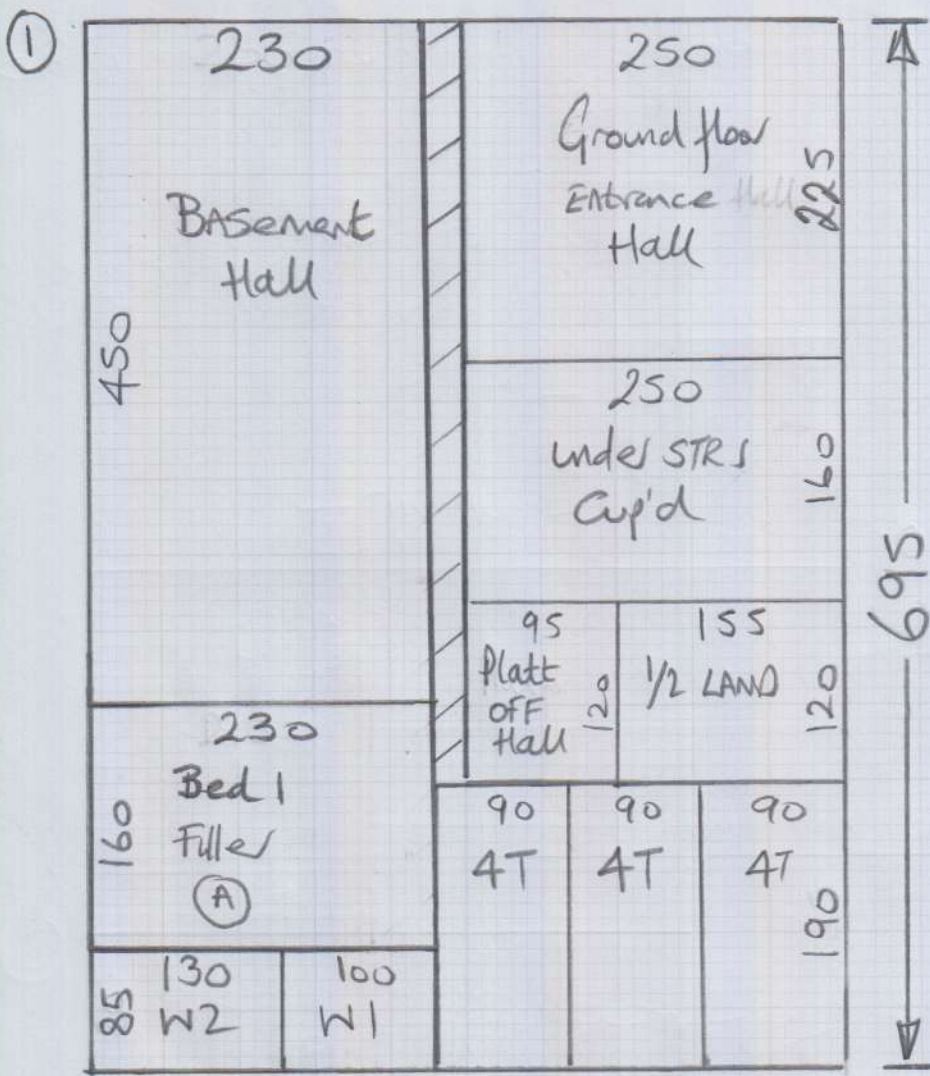 ①
230
Basement
Hall
450
250
Ground floor
Entrance Hall
Hall
225
250
under STRS
Cup'd
160
695
95
Platt
OFF
Hall
120
155
1/2 LAND
120
230
Bed 1
Filler
Ⓐ
160
90
4T
90
4T
90
4T
190
130
W2
85
100
W1